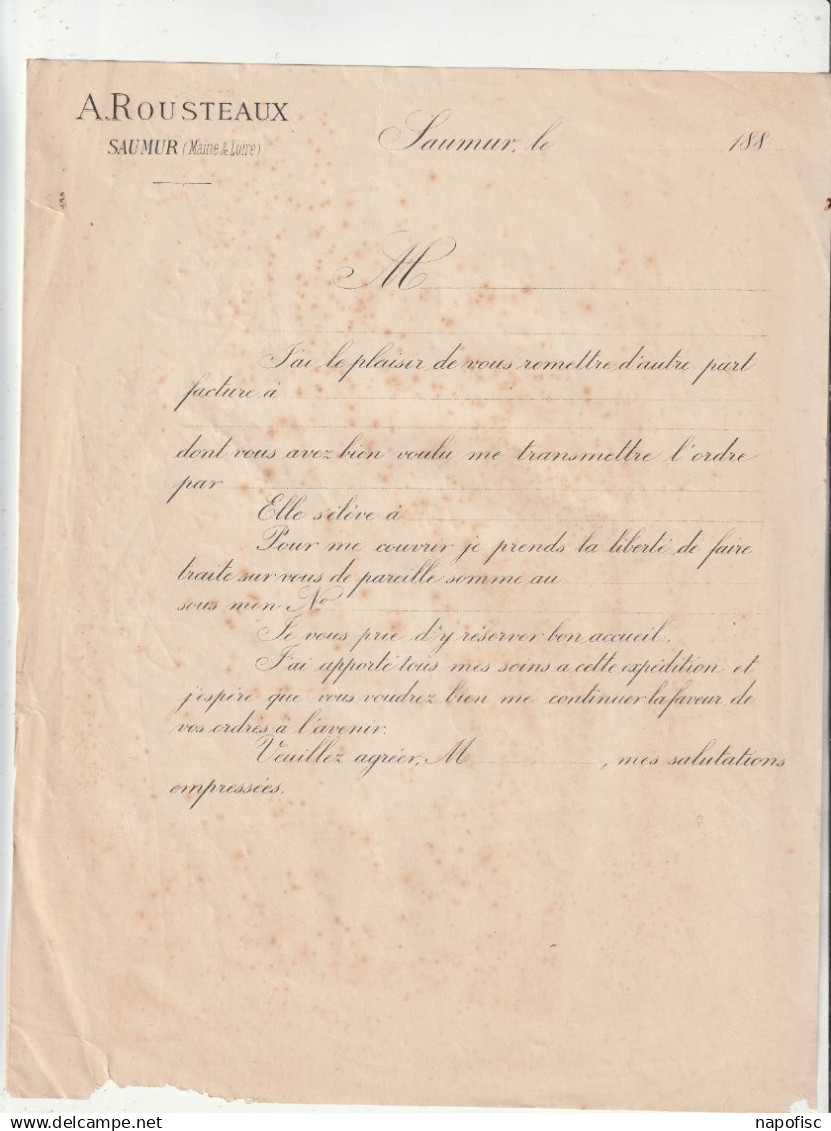 A. ROUSTEAUX
SAUMUR (Maine & Loire)
Saumur, le 188
M
J'ai le plaisir de vous remettre d'autre part
facture à
dont vous avez bien voulu me transmettre l'ordre
par
Elle s'élève à
Pour me couvrir je prends la liberté de faire
traite sur vous de pareille somme au
sous mon No
Je vous prie d'y réserver bon accueil.
J'ai apporté tous mes soins a cette expédition et
j'espère que vous voudrez bien me continuer la faveur de
vos ordres à l'avenir.
Veuillez agréer, M , mes salutations
empressées.
napofisc